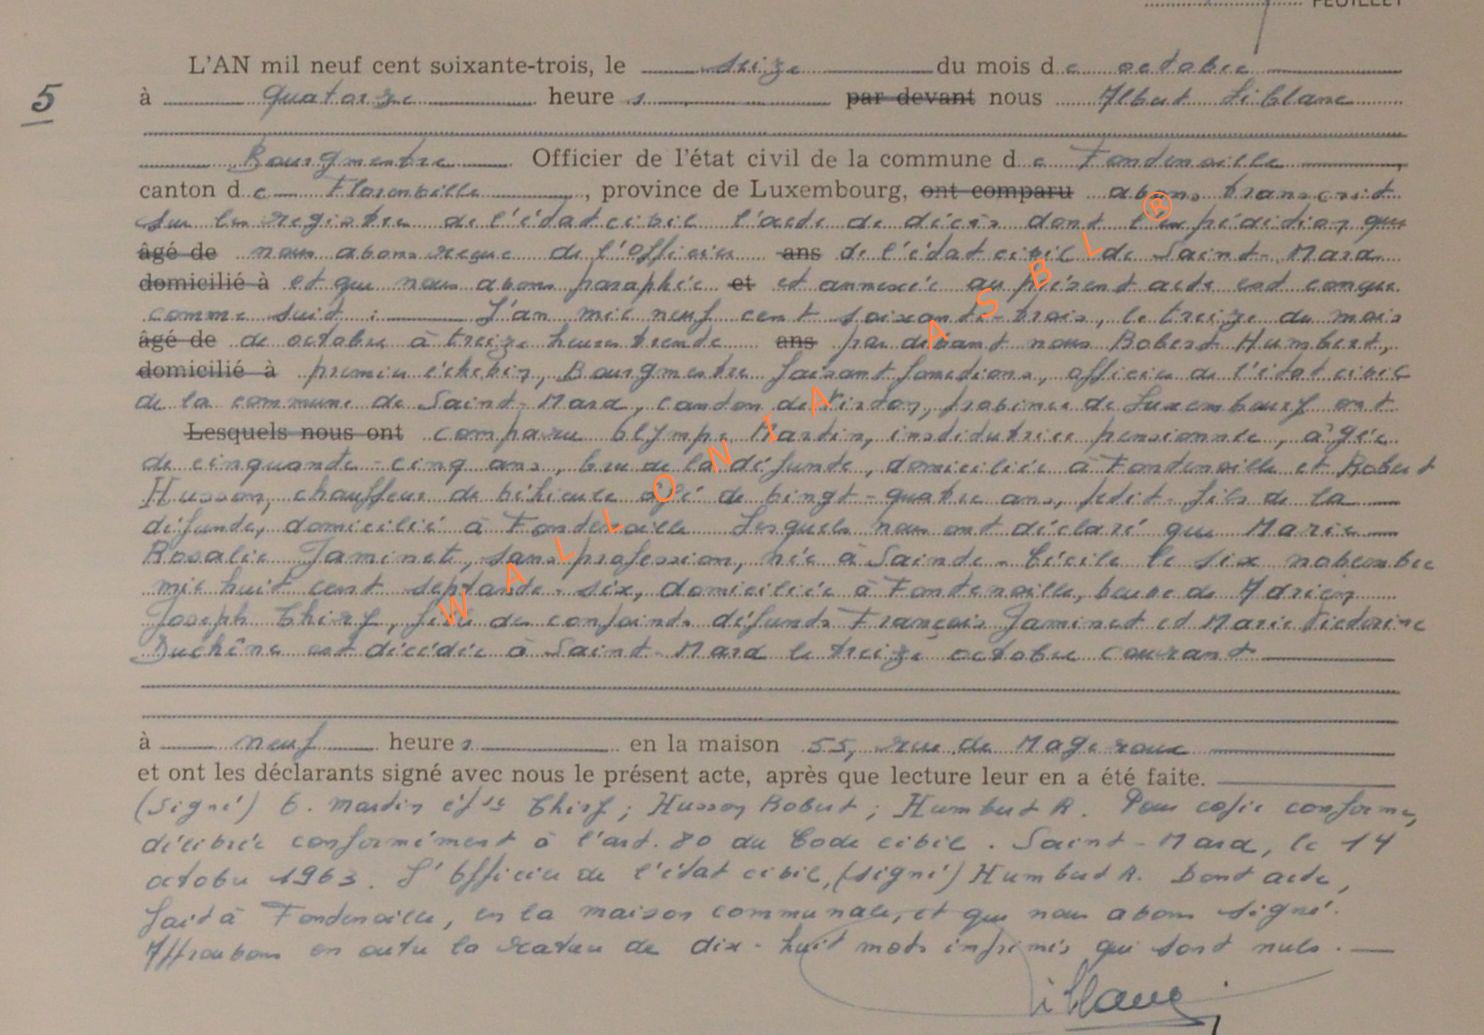 FEUILLET
L'AN mil neuf cent soixante-trois, le seize du mois de octobre
5
à quatorze heures par devant nous Albert Liblanc
Bourgmestre Officier de l'état civil de la commune de Fontenoille
canton de Florenville, province de Luxembourg, ont comparu avons transcrit
sur les registres de l'état civil l'acte de décès dont l'expédition que
âgé de nous avons reçue de l'officier ans de l'état civil de Saint-Mard
domicilié à et que nous avons paraphée et et annexée au présent acte est conçue
comme suit : L'an mil neuf cent soixante-trois, le treize du mois
âgé de de octobre à treize heures trente ans par devant nous Robert Humbert,
domicilié à premier échevin, Bourgmestre faisant fonctions, officier de l'état civil
de la commune de Saint-Mard, canton de Virton, province de Luxembourg ont
Lesquels nous ont comparu Olympe Martin, institutrice pensionnée, âgée
de cinquante-cinq ans, bru de la défunte, domiciliée à Fontenoille et Robert
Husson, chauffeur de véhicule âgé de vingt-quatre ans, petit-fils de la
défunte, domicilié à Fontenoille Lesquels nous ont déclaré que Marie
Rosalie Jaminet, sans profession, née à Sainte-Cécile le six novembre
mil huit cent septante-six, domiciliée à Fontenoille, veuve de Adrien
Joseph Thiry, fille des conjoints défunts François Jaminet et Marie Victorine
Duchêne est décédée à Saint-Mard le treize octobre courant
à neuf heures en la maison 55, rue de Mageroux
et ont les déclarants signé avec nous le présent acte, après que lecture leur en a été faite.
(signé) O. Martin épse Thiry ; Husson Robert ; Humbert R. Pour copie conforme,
délivrée conformément à l'art. 80 du Code civil. Saint-Mard, le 14
octobre 1963. L'Officier de l'état civil, (signé) Humbert R. Dont acte,
fait à Fontenoille, en la maison communale, et que nous avons signé.
Approuvons en outre la rature de dix-huit mots imprimés qui sont nuls.
Liblanc
WALLONIA ASBL ®